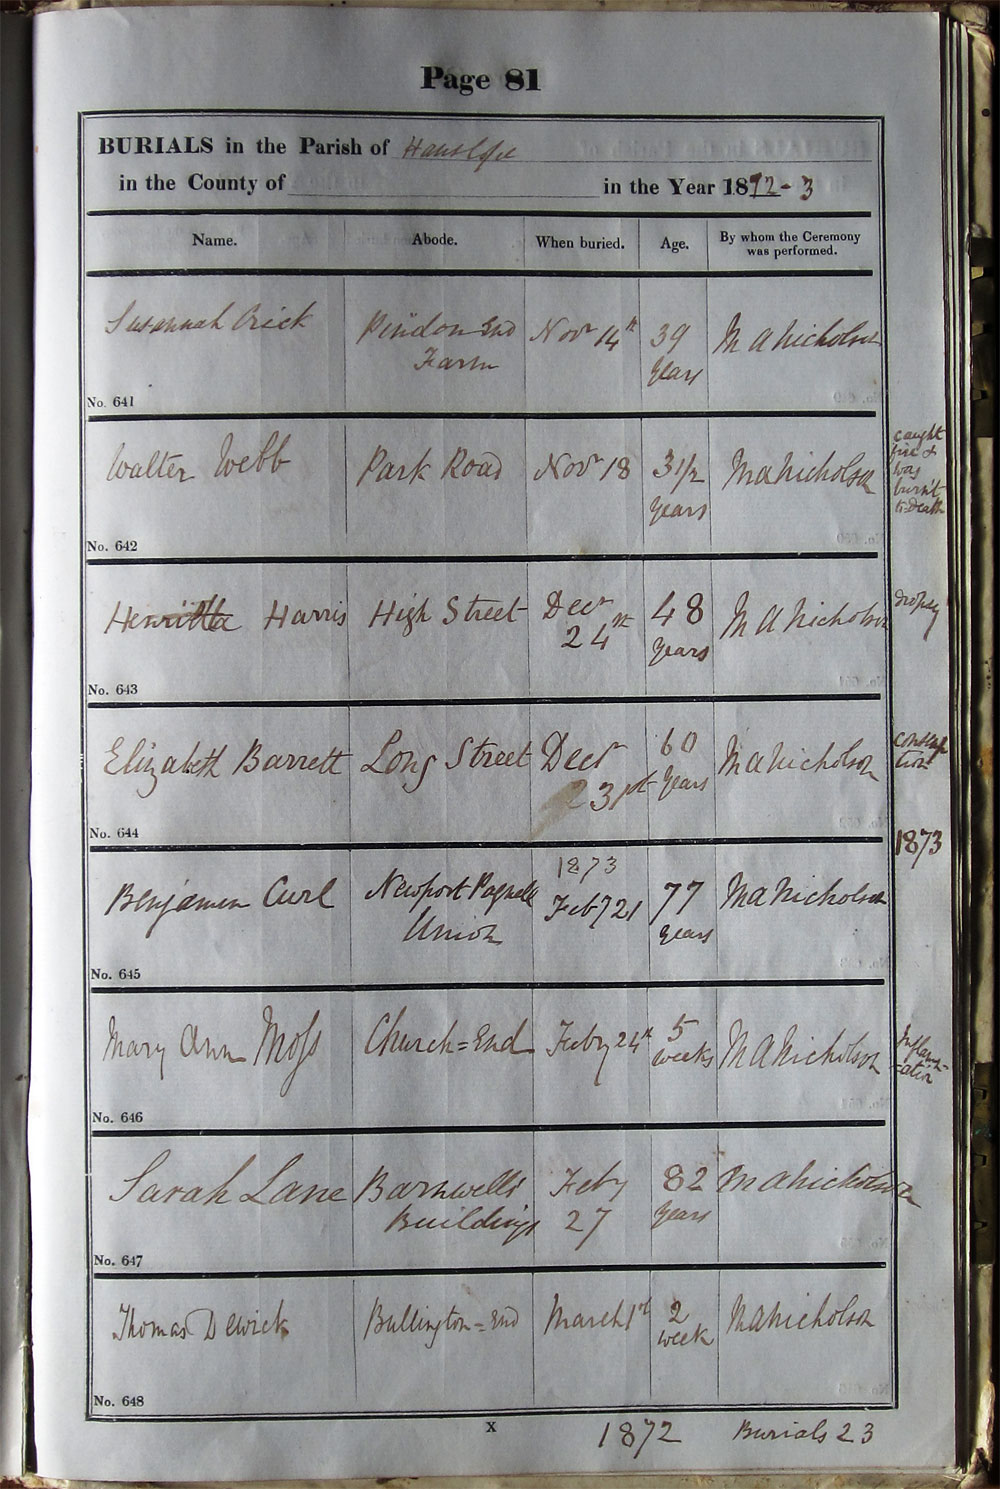 Page 81
BURIALS in the Parish of Hanslope
in the County of in the Year 1872-3
Name. Abode. When buried. Age. By whom the Ceremony was performed.
Susannah Crick Pindon End Novr 14th 39 M A Nicholson
Farm years
No. 641
Walter Webb Park Road Novr 18 3 1/2 M A Nicholson caught
years fire &
was
burnt
to Death
No. 642
Harris High Street Decr 48 M A Nicholson dropsy
24th years
No. 643
Elizabeth Barrett Long Street Decr 60 M A Nicholson consump
31st years tion
No. 644
1873
1873
Benjamin Curl Newport Pagnell Feby 21 77 M A Nicholson
Union years
No. 645
Mary Ann Moss Church=End Feby 24th 5 M A Nicholson Inflamm-
weeks -ation
No. 646
Sarah Lane Barnwells Feby 82 M A Nicholson
Buildings 27 years
No. 647
Thomas Dewick Bullington=End March 1st 2 M A Nicholson
week
No. 648
X
1872 Burials 23